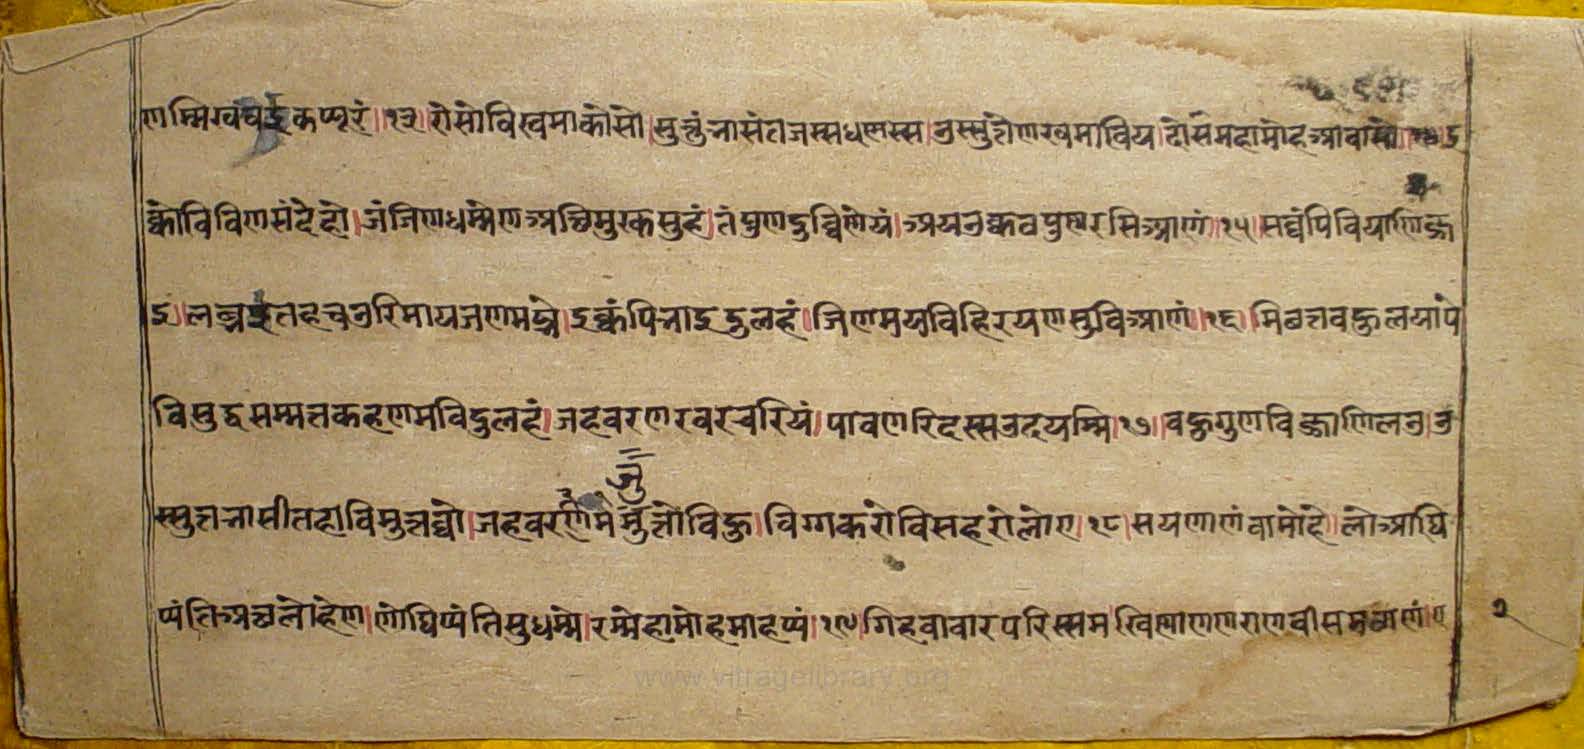 णम्मिखवंघइकप्पूरं॥१३॥रोसोविखमाकोसो।सुत्तुंभासंतजस्सधणस्स।उस्सुत्तेणखमाविय।दोसंमहामोहआवासो॥१४॥इ
क्कोविविणसंदेहो।जंजिणधम्मेणअच्छिमुरकसुहं।तंपुणदुव्विणेयं।अयउक्कवपुण्णरसिआणं॥१५॥सव्वंपिवियाणिज्ज
इ।लब्भइतहचउरिमायजणमझे।इक्कंपिभाइदुलहं।जिणमयविहिरयणसुविआणं॥१६॥मिच्छत्तवहुलयाए
विसुद्धसम्मत्तकहणमविदुलहं।जहवरणरवरचरियं।पावणरिदस्सउदयम्मि।१७॥वहुगुणविज्जाणिलउ।उ
स्सुत्तभासीतहाविमुत्तव्वो।जहवरमणिजुत्तोविहु।विग्गकरोविसहरोलोए।१८।सयणाणंवामोहे।लोआघि
प्पंतिअच्छलोहेण।णोघिप्पंतिसुधम्मे।रम्मेहामोहमाहप्पं।१९॥गिहवावारपरिस्समखिण्णाणणराणवीसमठाणं।ए
२
www.vitragelibrary.org